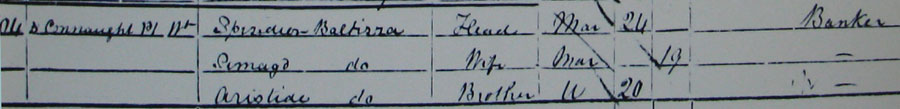 24 8 Connaught Pl Wt Spiridion Baltizza Head Mar 24 Banker
do Wife Mar 19 –
do Brother U 20 –